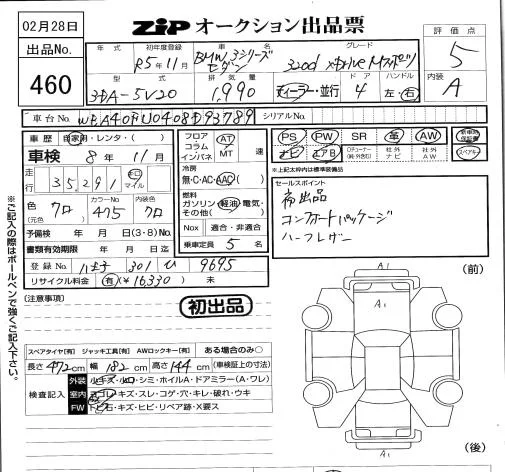 02月28日
出品No.
460
ZIP オークション出品票
評価点
5
内装
A
年式 初年度登録 車名 グレード
R5年11月 BMW 3シリーズ セダン 320d xDrive Mスポーツ
型式 排気量 ドア ハンドル
3DA-5V20 1,990 ディーラー・並行 4 左・右
車台No. シリアルNo.
車歴 自家用・レンタ・( )
車検 8年 11月
走行 35,291 キロ マイル
色 クロ カラーNo 475 内装色 クロ
(元色 )
予備検 年 月 日(3・8)
書類有効期限 年 月 日迄
登録No. 八王子 301 ひ 9695
リサイクル料金 有(¥16,330) 未
フロア コラム インパネ AT MT 速
冷房
無・C・AC・AAC
燃料
ガソリン・軽油・電気・その他( )
Nox 適合・非適合
乗車定員 5 名
PS PW SR 革 AW 新車時保証書
ナビ エアB Oチューナー(純・外含む) 社外ナビ 社外AW スペアキー
※上記太枠内は標準装備品
セールスポイント
初出品
コンフォートパッケージ
ハーフレザー
※ご記入の際はボールペンで強くご記入下さい。
(注意事項)
初出品
スペアタイヤ[有] ジャッキ工具[有] AWロックキー[有] ある場合のみ〇
長さ 472cm 幅 182cm 高さ 144cm (車検証上の寸法)
検査記入
外装 小キズ・小凹・シミ・ホイルA・ドアミラー(A・ワレ)
室内 ヨゴレ・キズ・スレ・コゲ・穴・キレ・破れ・ウキ
FW トビ石・キズ・ヒビ・リペア跡・X要ス
A1
(前)
A1
A1
(後)